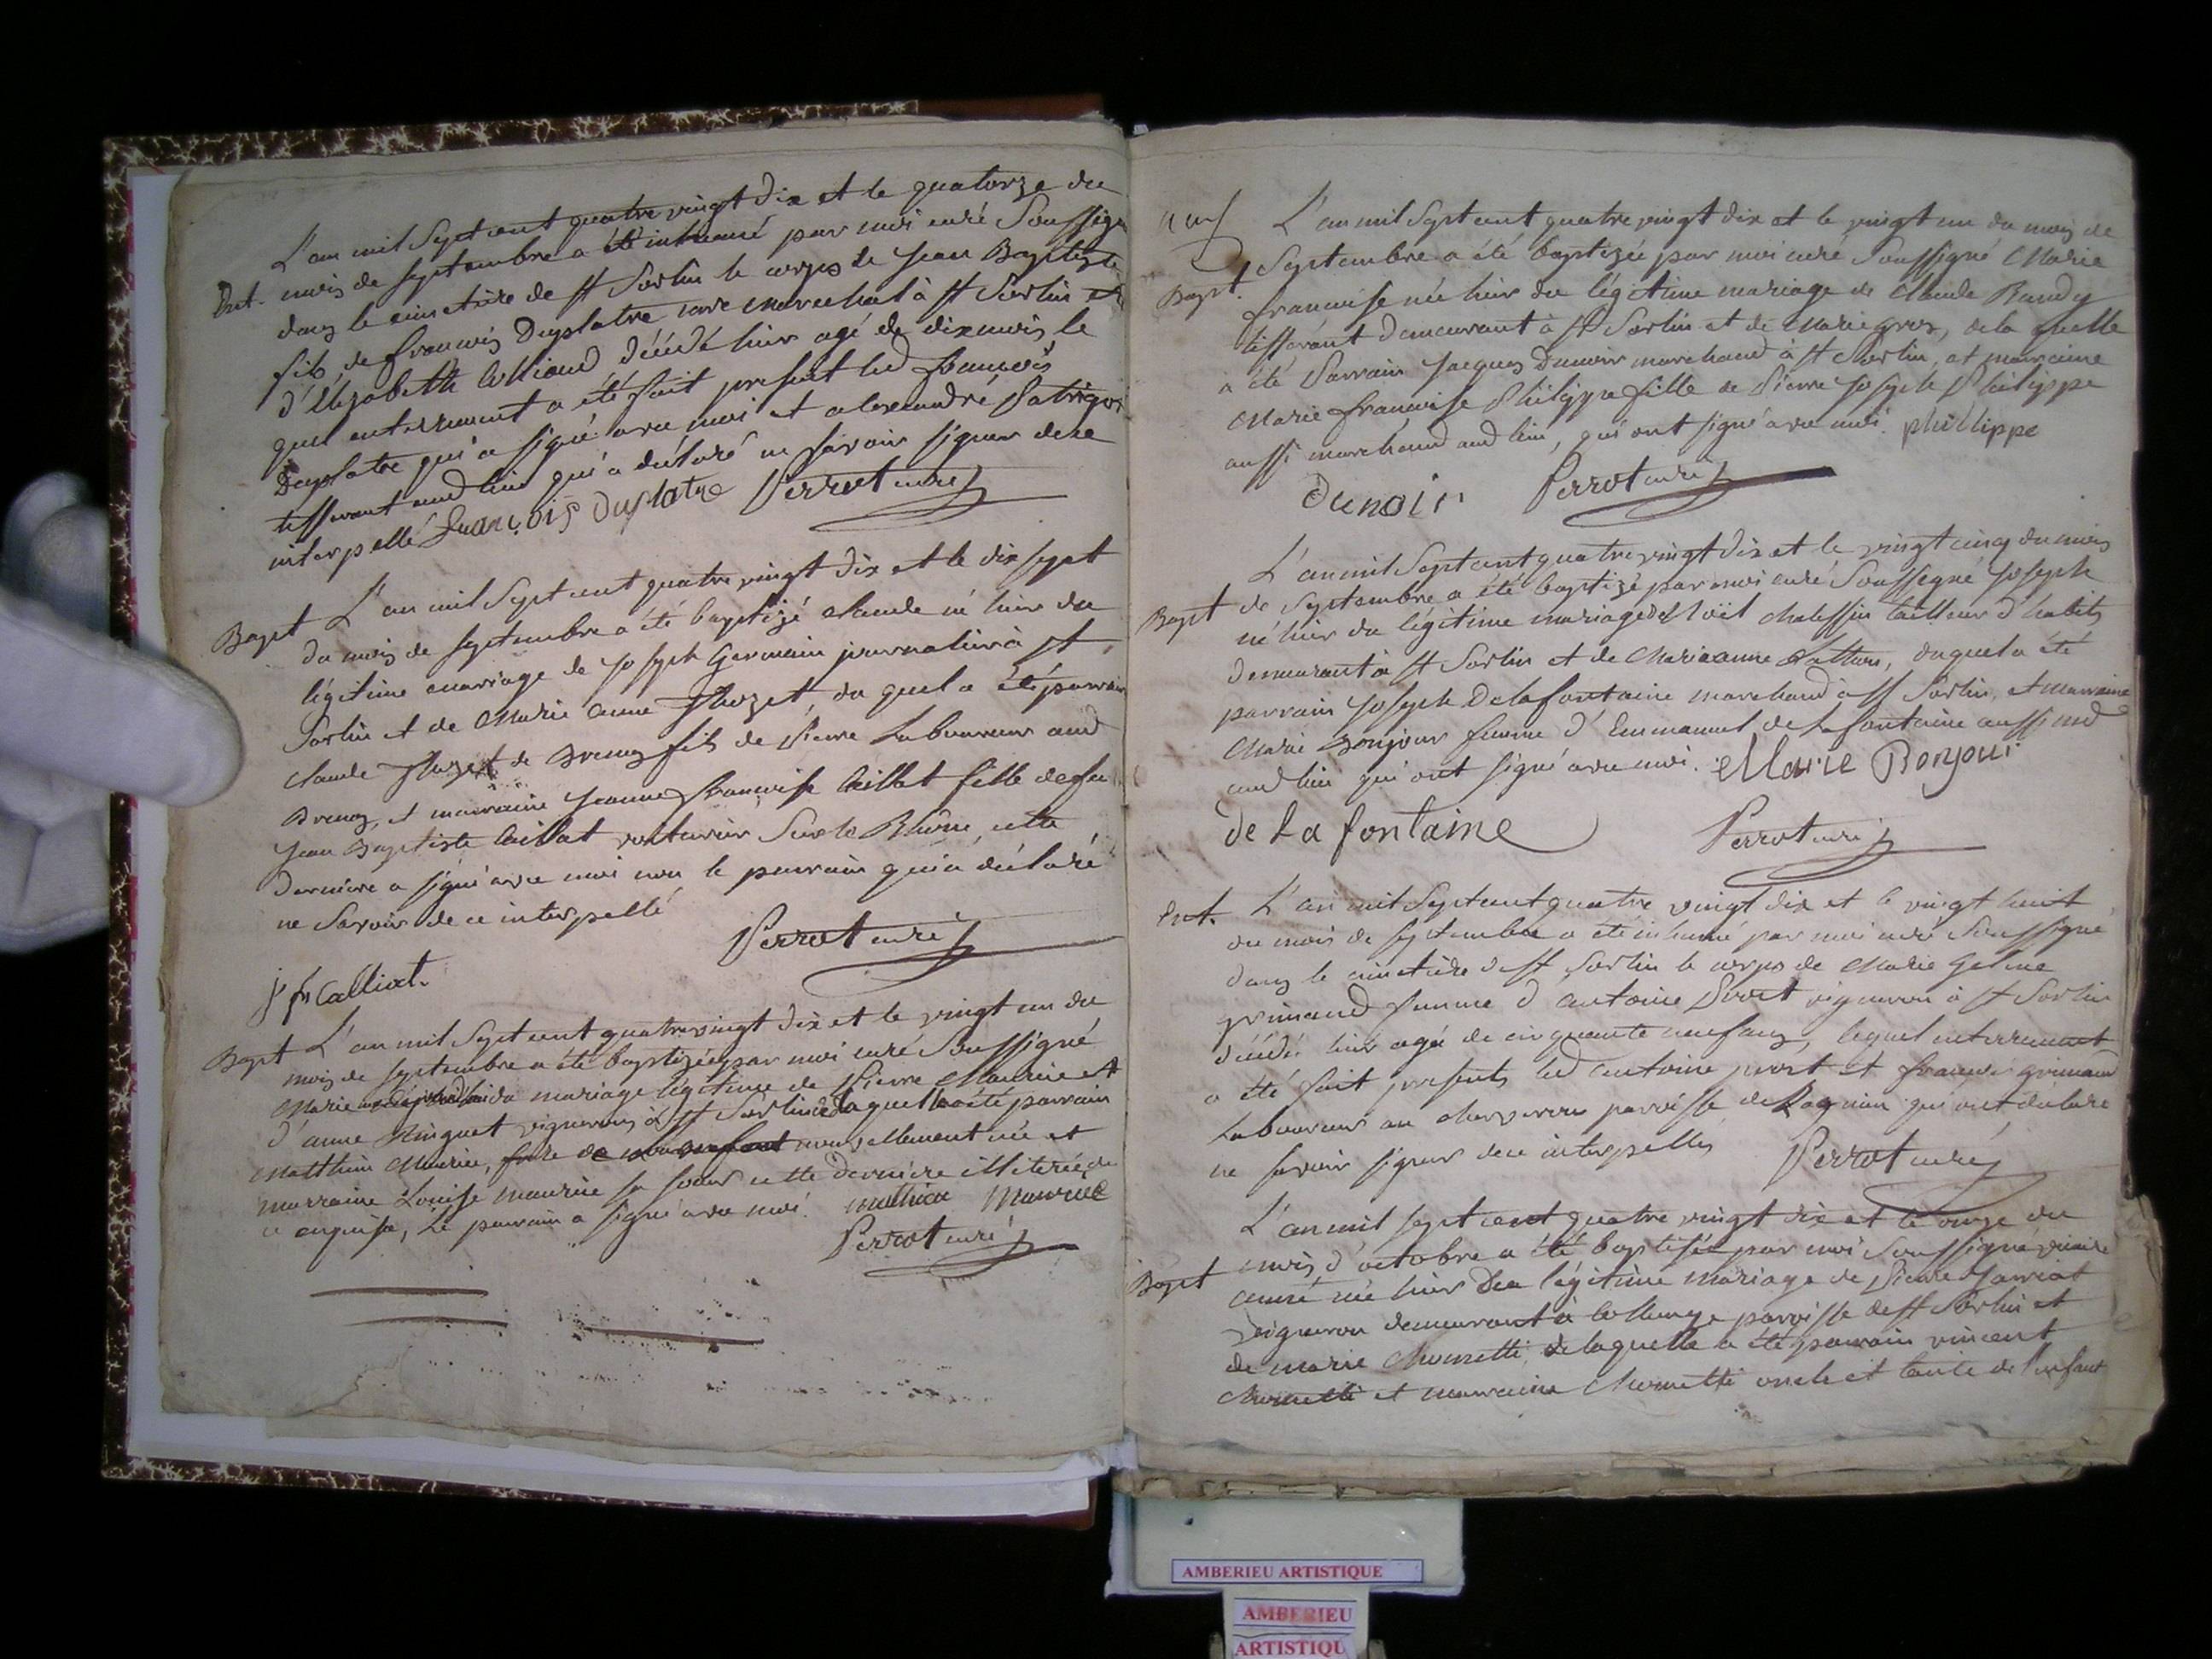 L'an mil Sept cent quatre vingt dix et le quatorze du
Ent. mois de septembre a été inhumé par moi curé Soussigné
dans le cimetière de st Sorlin le corps de jean Baptiste
fils de francois Duplatre marechal à st Sorlin et
d'Elizabeth Colliaud décédé hier agé de dix mois, le
quel enterrement a été fait présent led francois
Duplatre qui a signé avec moi et alexandre
tisserant aud lieu qui a déclaré ne savoir signer de ce
interpellé françois duplatre Perrot curé
Bapt L'an mil Sept cent quatre vingt dix et le dix sept
du mois de septembre a été baptizé claude né hier du
légitime mariage de joseph Germain journalier à st
Sorlin et de Marie anne du quel a été parrain
claude de fils de Pierre Laboureur aud
et marraine jeanne francoise Caillat fille de feu
jean Baptiste Caillat voiturier Sur le Rhône, cette
derniere a signé avec moi non le parrain qui a déclaré
ne Savoir de ce interpellé
Perrot curé
j fr Calliat.
Bapt L'an mil Sept cent quatre vingt dix et le vingt un du
mois de septembre a été baptizée par moi curé Soussigné
Marie du mariage légitime de Pierre Maurice et
d'anne Ringuet vignerons à st Sorlin de laquelle a été parrain
Matthieu Maurice, frere de nouvellement née et
marraine Louise maurice sa soeur cette derniere illiterée de
ce enquise, Le parrain a signé avec moi. mathieu Maurice
Perrot curé
neuf
L'an mil Sept cent quatre vingt dix et le vingt un du mois de
Bapt. Septembre a été baptizée par moi curé Soussigné Marie
francoise née hier du légitime mariage de Claude Baudy
tisserant demeurant à st Sorlin et de Marie gros, de la quelle
a été Parrain jacques Dunoir marchand à st Sorlin, et marraine
Marie francoise Philippe fille de Pierre joseph Philippe
aussi marchand aud lieu, qui ont signé avec moi. phillippe
Dunoir Perrot curé
L'an mil Sept cent quatre vingt dix et le vingt cinq du mois
Bapt de Septembre a été baptizé par moi curé Soussigné joseph
né hier du légitime mariage de Noël tailleur d'habits
demeurant à st Sorlin et de Marie anne duquel a été
parrain joseph Delafontaine marchand à st Sorlin, et marraine
Marie Bonjour femme d'Emmanuel de Lafontaine aussi md
aud lieu qui ont signé avec moi. Marie Bonjour
de La fontaine Perrot curé
Ent. L'an mil Sept cent quatre vingt dix et le vingt huit
du mois de septembre a été inhumé par moi curé Soussigné
dans le cimetière de st Sorlin le corps de Marie
grimaud femme d'antoine Prost vigneron à st Sorlin
décédée hier agée de cinquante neuf ans, lequel enterrement
a été fait présents led antoine prost et francois grimaud
Laboureur au parroisse de Lagnieu qui ont déclaré
ne savoir signer de ce interpellés Perrot curé
L'an mil sept cent quatre vingt dix et le onze du
mois d'octobre a été baptisée par moi Soussigné vicaire
Bapt née hier du légitime mariage de Pierre
Vigneron demeurant à Collonge paroisse de st Sorlin et
de marie de laquelle a été parrain vincent
et marraine oncle et tante de l'enfant
AMBERIEU ARTISTIQUE
AMBERIEU
ARTISTIQU